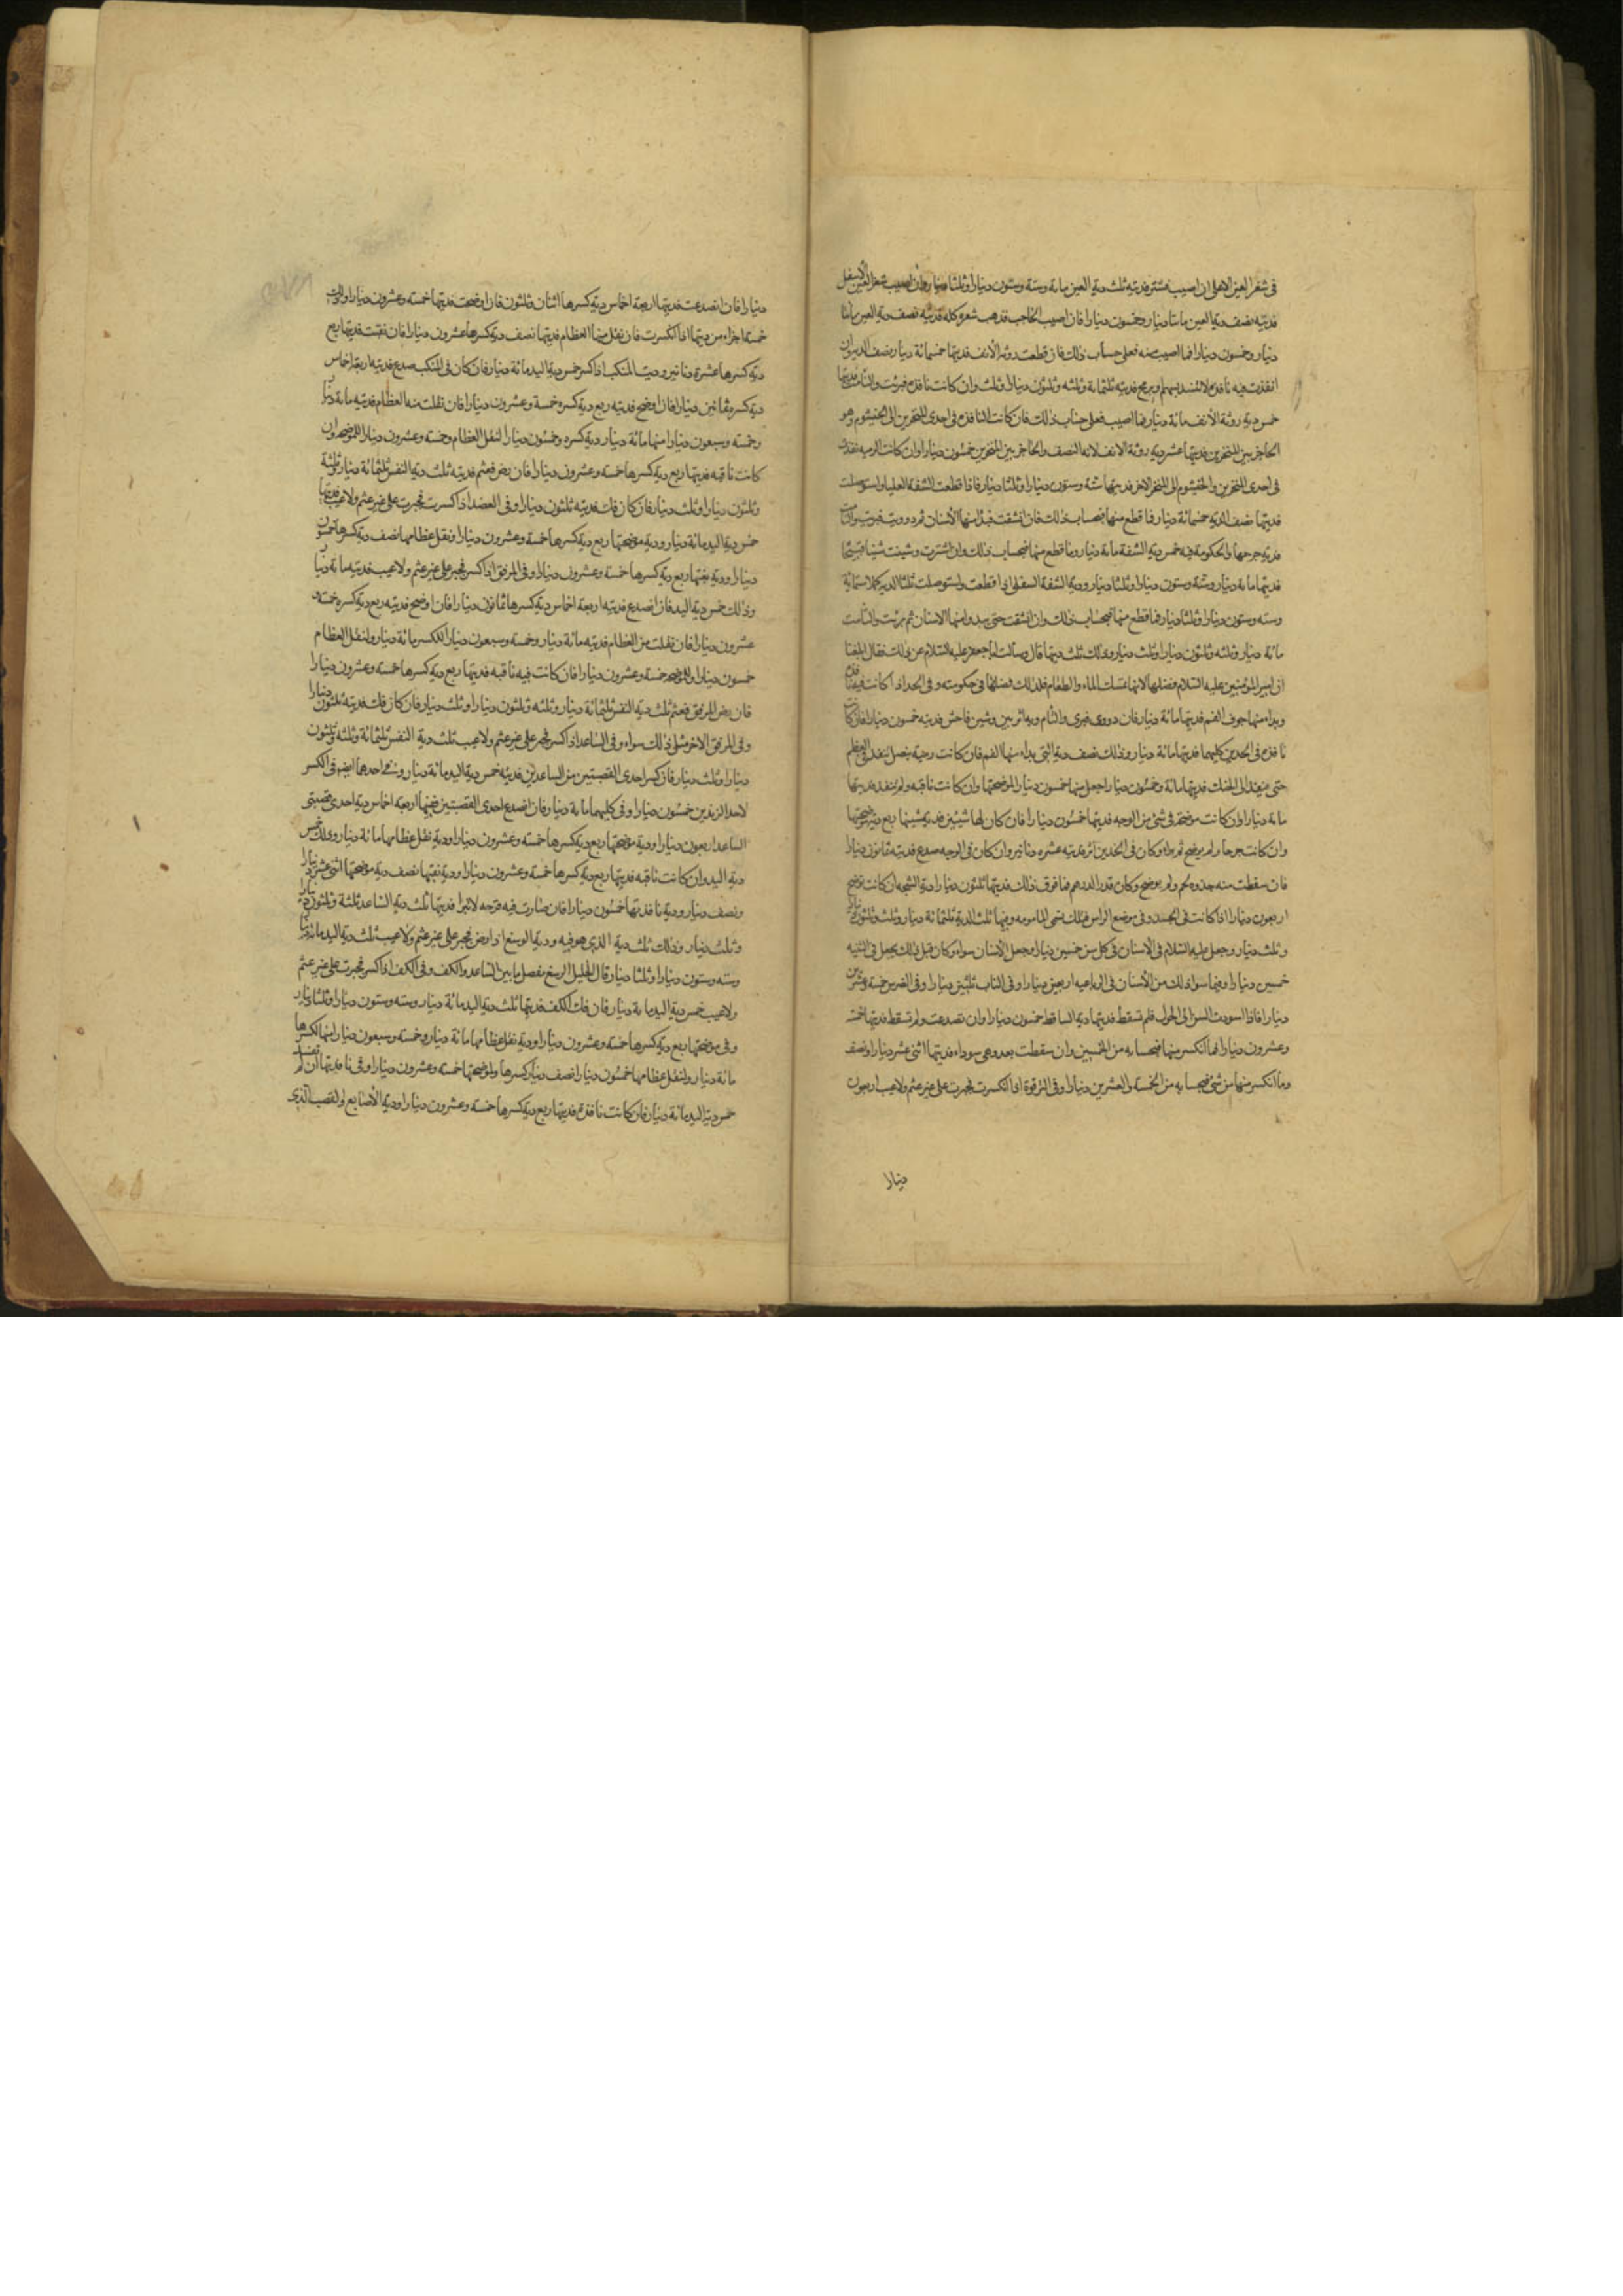 فى شفر العين الاعلى ان اصيب فشتر فديته ثلث دية العين مائة وستة وستون دينارا وثلثا دينار وان اصيب شفر العين الاسفل
فديته نصف دية العين مائتا دينار وخمسون دينارا فان اصيب الحاجب فذهب شعره كله فديته نصف دية العين مائتا
دينار وخمسون دينارا فما اصيب منه فعلى حساب ذلك فان قطعت روثة الأنف فديتها خمسمائة دينار نصف الدية وان
انفذت فيه نافذة لا تنسد بسهم او برمح فديته ثلثمائة وثلثه وثلثون دينارا وثلث وان كانت نافذة فبرئت والتأمت فديتها
خمس دية روثة الأنف مائة دينار فما اصيب فعلى حساب ذلك فان كانت النافذة فى احدى المنخرين الى الخيشوم وهو
الحاجز بين المنخرين فديتها عشر دية روثة الانف لانه النصف والحاجز بين المنخرين خمسون دينارا وان كانت الرميه نفذت
فى احدى المنخرين والخيشوم الى المنخر الاخر فديتها ستة وستون دينارا وثلثا دينار فاذا قطعت الشفة العليا واستوصلت
فديتها نصف الدية خمسمائة دينار فما قطع منها فبحساب ذلك فان انشقت فبدا منها الأسنان ثم دوويت فبرئت والتأمت
فدية جرحها والحكومة فيه خمس دية الشفة مائة دينار وما قطع منها فبحساب ذلك وان شترت وشينت شينا قبيحا
فديتها مائة دينار وستة وستون دينارا وثلثا دينار ودية الشفة السفلى اذا قطعت واستوصلت ثلثا الدية كملا ستمائة
وسته وستون دينارا وثلثا دينار فما قطع منها فبحساب ذلك وان انشقت حتى يبدوا منها الاسنان ثم برئت والتأمت
مائة دينار وثلثه وثلثون دينارا وثلث دينار وذلك ثلث ديتها قال وسالت ابا جعفر عليه السلام عن ذلك فقال بلغنا
ان امير المؤمنين عليه السلام فضلها لانها تمسك الماء والطعام فلذلك فضلها فى حكومته وفى الخد اذا كانت فيه نافذة
ويدا منها جوف الفم فديتها مائة دينار فان دووى فبرى والتأم وبه اثر بين وشين فاحش فديته خمسون دينارا فان كانت
نافذة فى الخدين كليهما فديتها مائة دينار وذلك نصف دية التى بدا منها الفم فان كانت رمية بنصل نفذ فى العظم
حتى ينفذ الى الحنك فديتها مائة وخمسون دينارا جعل منها خمسون دينارا لموضحتها وان كانت ناقبه ولم تنفذ فديتها
مائة دينار وان كانت موضحة فى شئ من الوجه فديتها خمسون دينارا فان كان لها شين فدية شينها ربع دية موضحتها
وان كانت جرحا ولم يوضح ثم برا وكان فى الخدين اثر فديته عشرة دنانير وان كان فى الوجه صدع فديته ثمانون دينارا
فان سقطت منه جذوة لحم ولم يوضح وكان قدر الدرهم فما فوق ذلك فديتها ثلثون دينارا ودية الشجه ان كانت توضح
اربعون دينارا اذا كانت فى الجسد وفى موضع الراس فتلك تسمى المامومه وفيها ثلث الدية ثلثمائة دينار وثلثه وثلثون دينارا
وثلث دينار وجعل عليه السلام فى الاسنان فى كل سن خمسين دينارا وجعل الأسنان سواء وكان قبل ذلك يجعل فى الثنيه
خمسين دينارا وفيما سوا ذلك من الأسنان فى الرباعيه اربعين دينارا وفى الناب ثلثين دينارا وفى الضرس خمسة وعشرين
دينارا فاذا اسودت السن الى الحول فلم تسقط فديتها دية الساقط خمسون دينارا وان تصدعت ولم تسقط فديتها خمسة
وعشرون دينارا فما انكسر منها فبحسابه من الخمسين وان سقطت بعد وهى سوداء فديتها اثنى عشر دينارا ونصف
وما انكسر منها من شئ فبحسابه من الخمسة والعشرين دينارا وفى الترقوة اذا انكسرت فجبرت على غير عثم ولا عيب اربعون
دينارا
دينارا فان انصدعت فديتها اربعة اخماس دية كسرها اثنان وثلثون فان اوضحت فديتها خمسة وعشرون دينارا وذلك
خمسة اجزاء من ديتها اذا انكسرت فان نقل منها العظام فديتها نصف دية كسرها عشرون دينارا فان نقبت فديتها ربع
دية كسرها عشرة دنانير ودية المنكب اذا كسر خمس دية اليد مائة دينار فان كان فى المنكب صدع فديته اربعة اخماس
دية كسره ثمانين دينارا فان اوضح فديته ربع دية كسره خمسة وعشرون دينارا فان نقلت منه العظام فديته مائة دينار
وخمسه وسبعون دينارا منها مائة دينار دية كسره وخمسون دينارا لنقل العظام وخمسة وعشرون دينارا للموضحه وان
كانت ناقبه فديتها ربع دية كسرها خمسه وعشرون دينارا فان رض فعثم فديته ثلث دية النفس ثلثمائة دينار وثلثة
وثلثون دينارا وثلث دينار فان كان فك فديته ثلثون دينارا وفى العضد اذا كسرت فجبرت على غير عثم ولا عيب فديتها
خمس دية اليد مائة دينار ودية موضحتها ربع دية كسرها خمسة وعشرون دينارا ونقل عظامها نصف دية كسرها خمسون
دينارا ودية نقبها ربع دية كسرها خمسة وعشرون دينارا وفى المرفق اذا كسر فجبر على غير عثم ولا عيب فديته مائة دينار
وذلك خمس دية اليد فان انصدع فديته اربعة اخماس دية كسرها ثمانون دينارا فان اوضح فديته ربع دية كسره خمسة و
عشرون دينارا فان نقلت منه العظام فديته مائة دينار وخمسه وسبعون دينارا للكسر مائة دينار ولنقل العظام
خمسون دينارا وللموضحه خمسة وعشرون دينارا فان كانت فيه ناقبه فديتها ربع دية كسرها خمسة وعشرون دينارا
فان رض المرفق فعثم ثلث دية النفس ثلثمائة دينار وثلثه وثلثون دينارا وثلث دينار فان كان فك فديته ثلثون دينارا
وفى المرفق الاخر مثل ذلك سواء وفى الساعد اذا كسر فجبر على غير عثم ولا عيب ثلث دية النفس ثلثمائة وثلثه وثلثون
دينارا وثلث دينار فان كسر احدى القصبتين من الساعدين فديته خمس دية اليد مائة دينار وفى احدها ايضه فى الكسر
لاحد الزندين خمسون دينارا وفى كليهما مائة دينار فان انصدع احدى القصبتين ففيها اربعة اخماس دية احدى قصبتى
الساعد اربعون دينارا ودية موضحتها ربع دية كسرها خمسة وعشرون دينارا ودية نقل عظامها مائة دينار وذلك خمس
دية اليد وان كانت ناقبه فديتها ربع دية كسرها خمسة وعشرون دينارا ودية نقبها نصف دية موضحتها اثنى عشر دينارا
ونصف دينار ودية نافذتها خمسون دينارا فان صارت فيه قرحه لا تبرا فديتها ثلث دية الساعد ثلثة وثلثون دينارا
وثلث دينار وذلك ثلث دية الذى هو فيه ودية الرسغ اذا رض فجبر على غير عثم ولا عيب ثلث دية اليد مائة دينار
وسته وستون دينارا وثلثا دينار قال الخليل الرسغ مفصل ما بين الساعد والكف وفى الكف اذا كسر فجبرت على غير عثم
ولا عيب خمس دية اليد مائة دينار فان فك الكف فديتها ثلث دية اليد مائة دينار وسته وستون دينارا وثلثا دينار
وفى موضحتها ربع دية كسرها خمسه وعشرون دينارا ودية نقل عظامها مائة دينار وخمسه وسبعون دينارا منها لكسرها
مائة دينار ولنقل عظامها خمسون دينارا نصف دية كسرها ولموضحتها خمسة وعشرون دينارا وفى نافذتها ان لم تنسد
خمس دية اليد مائة دينار فان كانت نافذة فديتها ربع دية كسرها خمسة وعشرون دينارا ودية الأصابع والقصب الذى